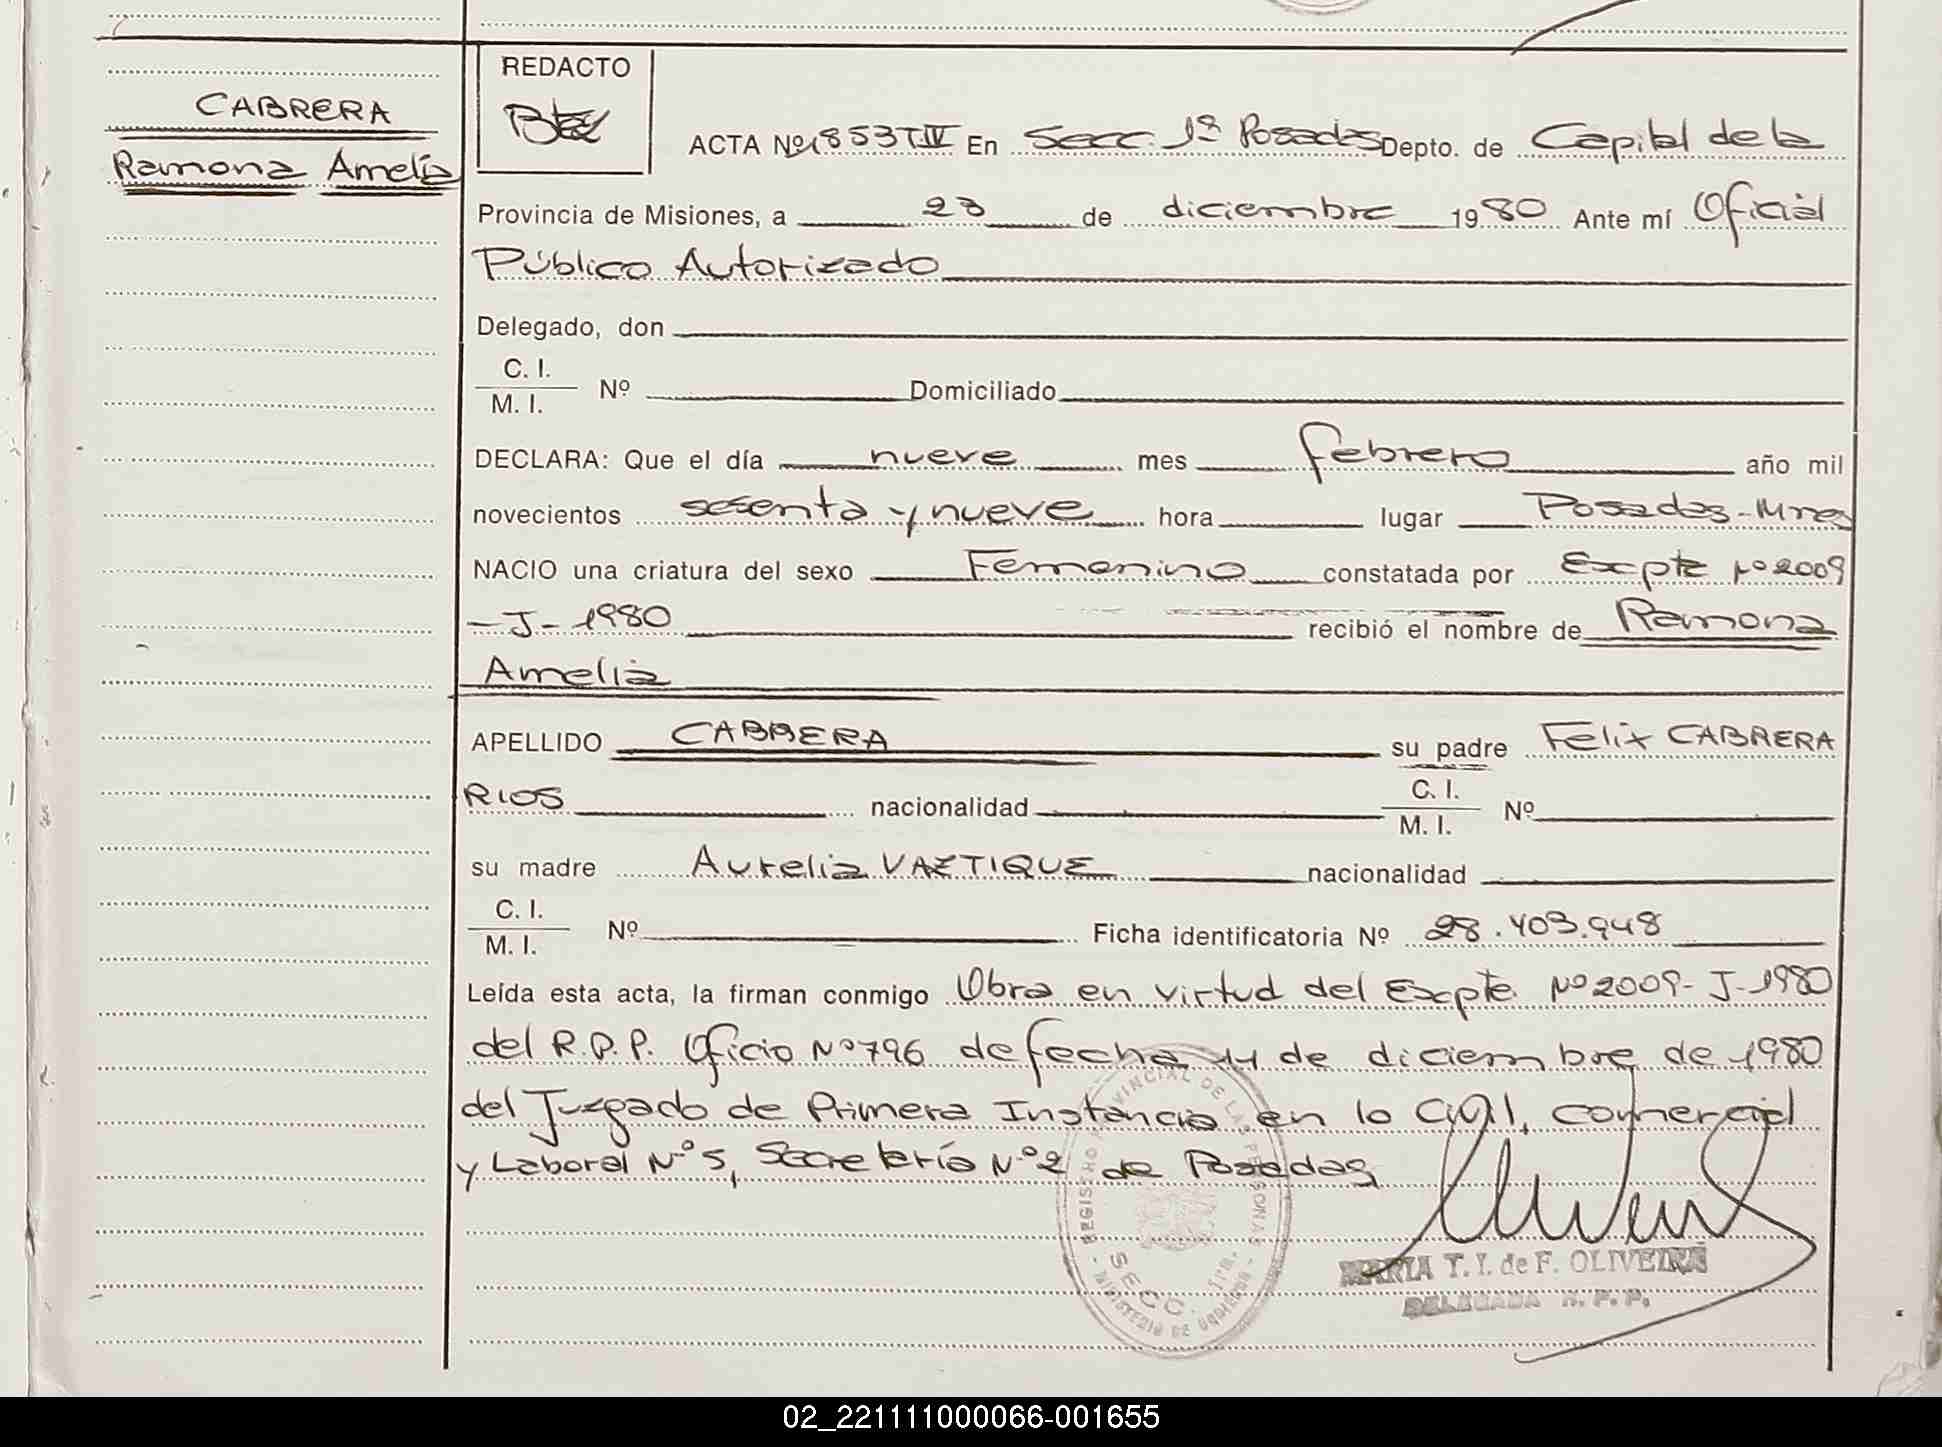 CABRERA
Ramona Amelia
REDACTO
ACTA Nº 1853 T IV En Secc. 1ª Posadas Depto. de Capital de la
Provincia de Misiones, a 23 de diciembre 1980 Ante mí Oficial
Público Autorizado
Delegado, don
C. I.
M. I. Nº Domiciliado
DECLARA: Que el día nueve mes febrero año mil
novecientos sesenta y nueve hora lugar Posadas-Mnes
NACIO una criatura del sexo Femenino constatada por Excpte Nº 2009
-J-1980 recibió el nombre de Ramona
Amelia
APELLIDO CABRERA su padre Felix CABRERA
RIOS nacionalidad C. I. M. I. Nº
su madre Aurelia VAZTIQUE nacionalidad
C. I.
M. I. Nº Ficha identificatoria Nº 28.403.948
Leída esta acta, la firman conmigo Obra en virtud del Excpte. Nº 2009-J-1980
del R.P.P. Oficio Nº 796 de fecha 11 de diciembre de 1980
del Juzgado de Primera Instancia en lo Civil, comercial
y Laboral Nº 5, Secretaría Nº 2 de Posadas,
REGISTRO PROVINCIAL DE LAS PERSONAS
SECC. 1ra.
MINISTERIO DE GOBIERNO
MARIA T. I. de F. OLIVEIRA
DELEGADA R. P. P.
02_221111000066-001655